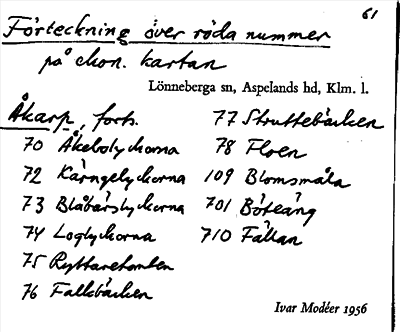 61
Förteckning över röda nummer
på ekon. kartan
Lönneberga sn, Aspelands hd, Klm. l.
Åkarp, forts.
70 Åkebolyckorna
72 Kärngelyckorna
73 Blåbärslyckorna
74 Loglyckorna
75 Ryttaretomten
76 Fallebäcken
77 Struttebäcken
78 Floen
109 Blomsmåla
701 Böteäng
710 Fällan
Ivar Modéer 1956